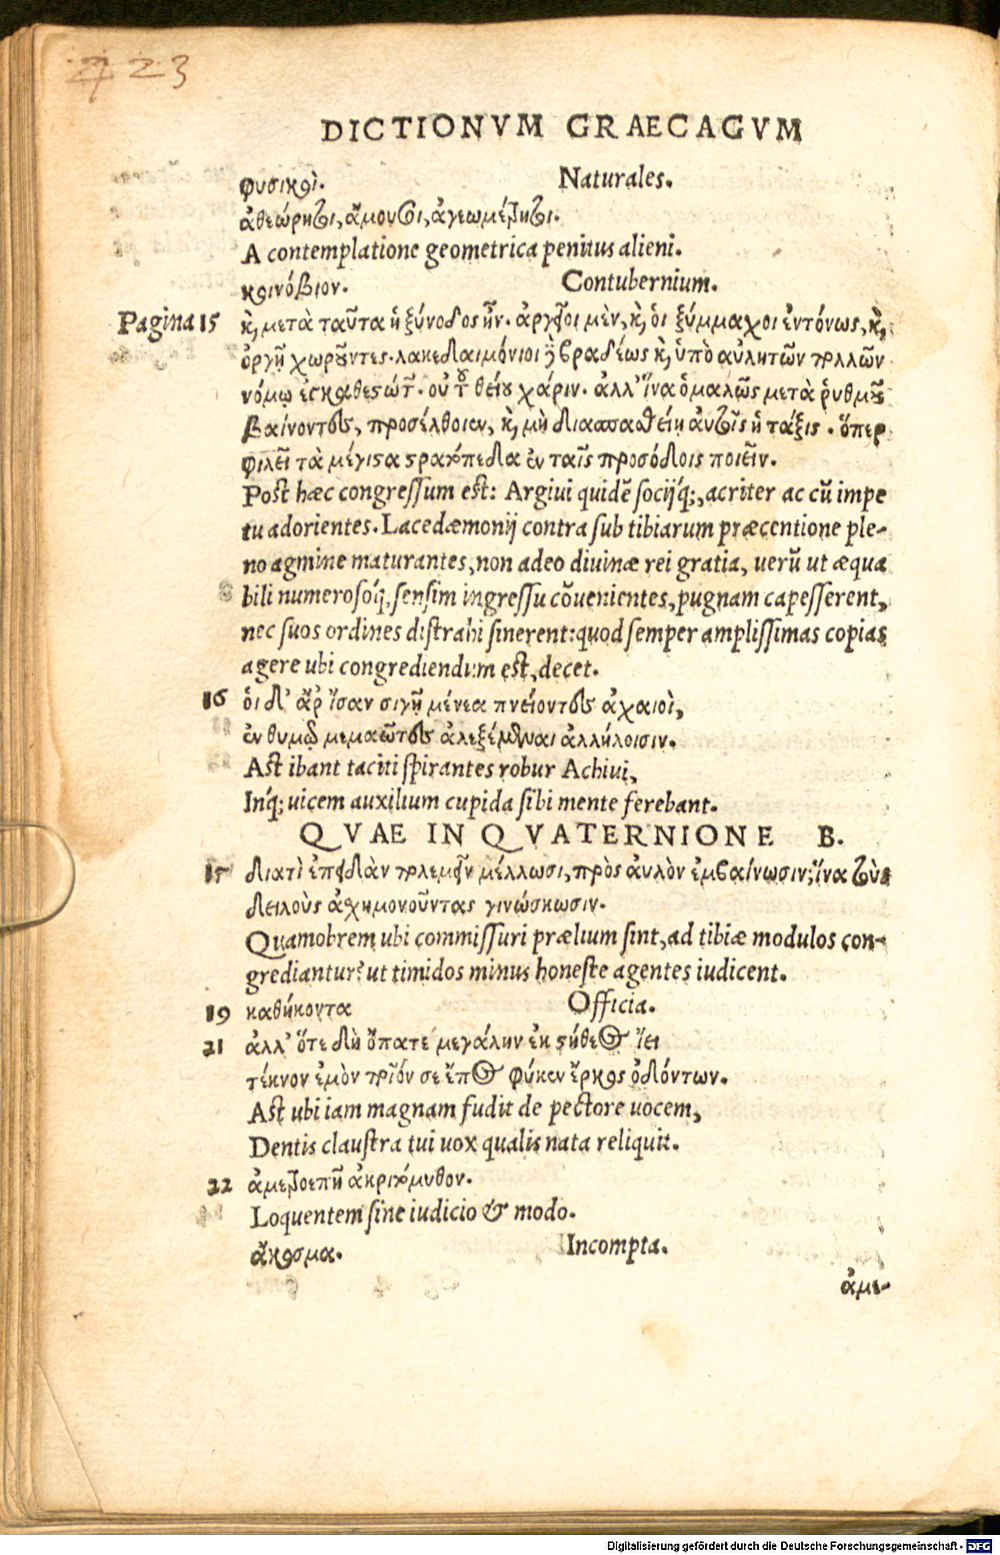 23
DICTIONVM GRAECAGVM
φυσικοὶ. Naturales.
ἀθεώρητοι, ἄμουσοι, ἀγεωμέτρητοι.
A contemplatione geometrica penitus alieni.
κοινόβιον. Contubernium.
Pagina 15 κὶ μετὰ ταῦτα ἡ ξύνοδος ἦν. ἀργεῖοι μὲν, κὶ οἱ ξύμμαχοι ἐντόνως, κὶ
ὀργῇ χωροῦντες. λακεδαιμόνιοι ἢ βραδέως κὶ ὑπὸ αὐλητῶν πολλῶν
νόμῳ ἐγκαθεςώτων. οὐ τοῦ θείου χάριν. ἀλλ' ἵνα ὁμαλῶς μετὰ ῥυθμοῦ
βαίνοντες, προσέλθοιεν, κὶ μὴ διασπασθείη αὐτοῖς ἡ τάξις. ὅπερ
φιλεῖ τὰ μέγιςα ςρατόπεδα ἐν ταῖς προσόδοις ποιεῖν.
Post hæc congressum est: Argiui quidē socijq́;, acriter ac cū impe
tu adorientes. Lacedæmonij contra sub tibiarum præcentione ple-
no agmine maturantes, non adeo diuinæ rei gratia, uerū ut æqua
bili numerosoq́, sensim ingressu cōuenientes, pugnam capesserent,
nec suos ordines distrahi sinerent: quod semper amplissimas copias
agere ubi congrediendum est, decet.
16 οἱ δ' ἄρ ἴσαν σιγῇ μένεα πνείοντες ἀχαιοὶ,
ἐν θυμῷ μεμαῶτες ἀλεξέμεναι ἀλλήλοισιν.
Ast ibant taciti spirantes robur Achiui,
Inq́; uicem auxilium cupida sibi mente ferebant.
QVAE IN QVATERNIONE B.
15 διατὶ ἐπειδὰν πολεμεῖν μέλλωσι, πρὸς αὐλὸν ἐμβαίνωσιν; ἵνα τοὺς
δειλοὺς ἀχημονοῦντας γινώσκωσιν.
Quamobrem ubi commissuri prælium sint, ad tibiæ modulos con-
grediantur? ut timidos minus honeste agentes iudicent.
19 καθήκοντα Officia.
21 ἀλλ' ὅτε δὴ ὄπατε μεγάλην ἐκ ςήθεος ἵει
τέκνον ἐμὸν ποῖόν σε ἔπος φύκεν ἕρκος ὀδόντων.
Ast ubi iam magnam fudit de pectore uocem,
Dentis claustra tui uox qualis nata reliquit.
22 ἀμετροεπῆ ἀκριτόμυθον.
Loquentem sine iudicio & modo.
ἄκοσμα. Incompta.
ἀμε-
Digitalisierung gefördert durch die Deutsche Forschungsgemeinschaft - DFG